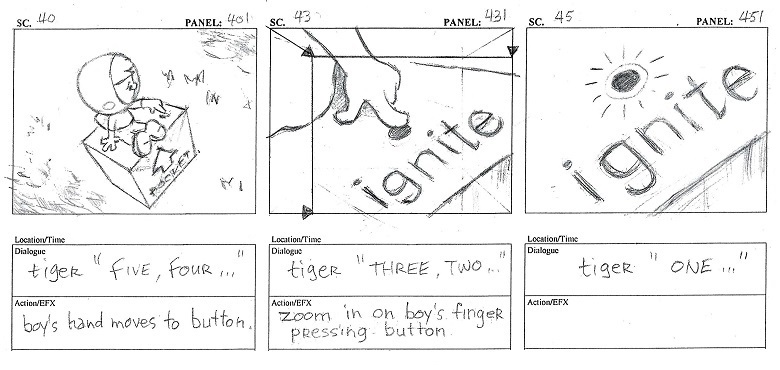 SC. 40 PANEL: 401
ROCKET
Location/Time
Dialogue
tiger "FIVE, FOUR..."
Action/EFX
boy's hand moves to button.
SC. 43 PANEL: 431
ignite
Location/Time
Dialogue
tiger "THREE, TWO..."
Action/EFX
zoom in on boy's finger
pressing button
SC. 45 PANEL: 451
ignite
Location/Time
Dialogue
tiger "ONE..."
Action/EFX